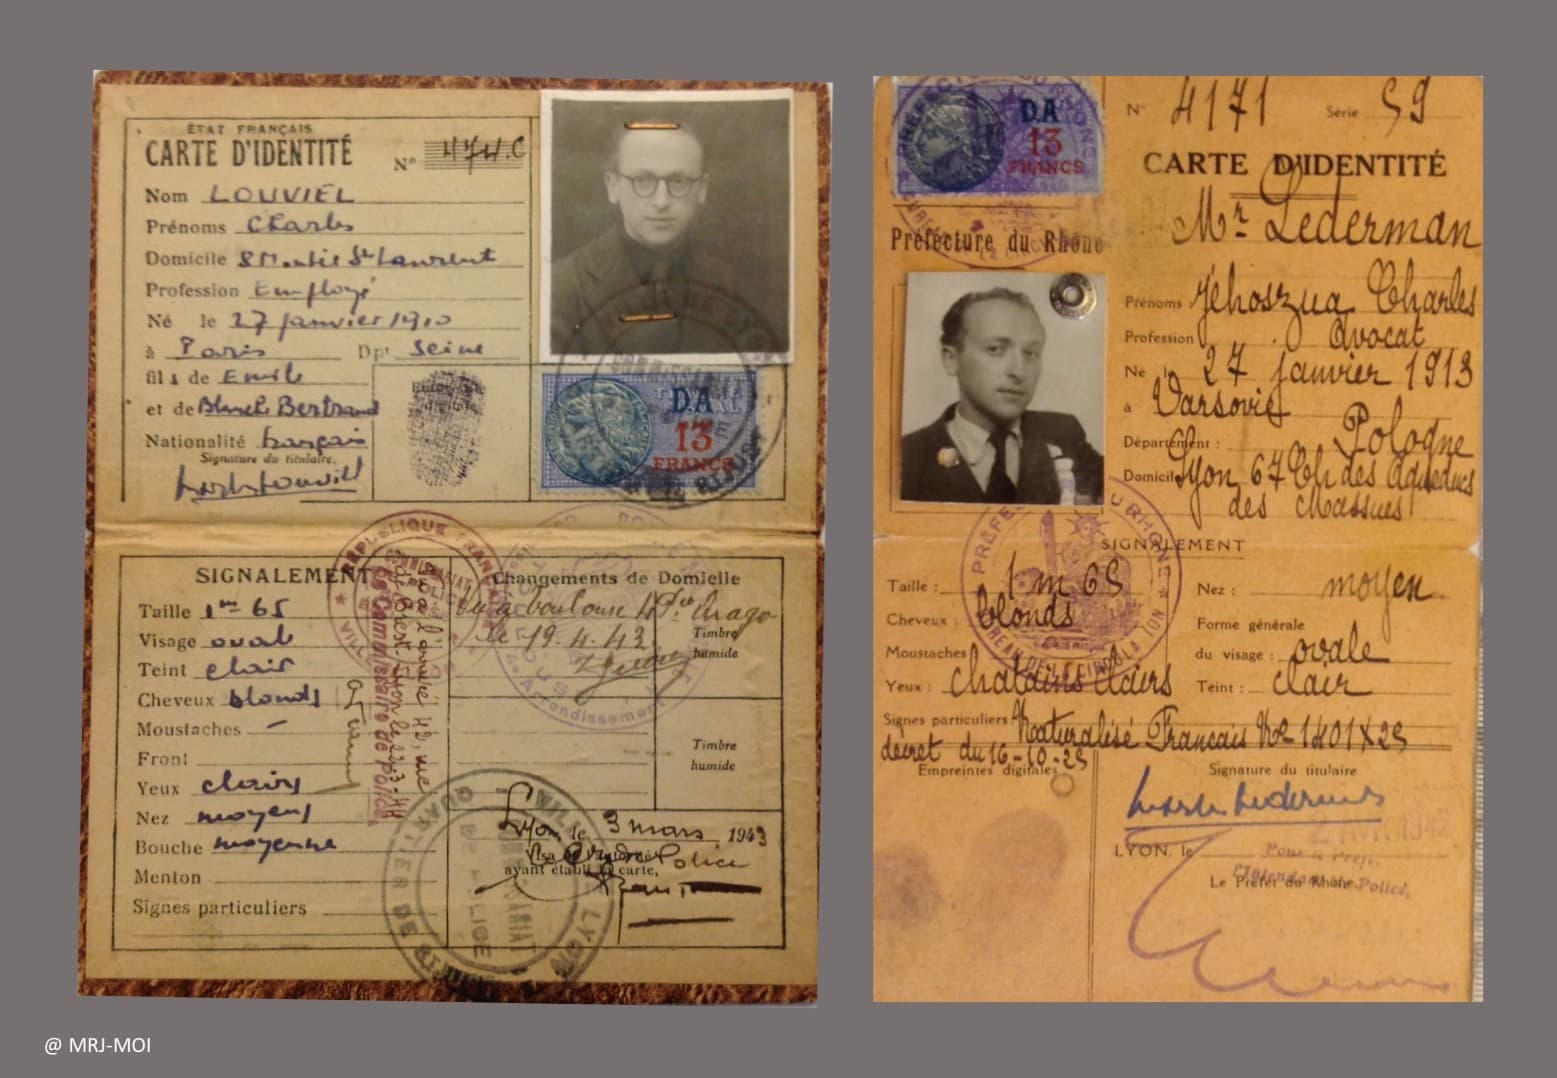 ÉTAT FRANÇAIS
CARTE D'IDENTITÉ
N° 474.C
Nom LOUVIEL
Prénoms Charles
Domicile St Laurent
Profession Employé
Né le 27 janvier 1910
à Paris Dpt Seine
fils de Emile
et de Blanche Bertrand
Nationalité français
Signature du titulaire.
VILLE DE LYON
COMMISSARIAT
DA
13
FRANCS
SIGNALEMENT
Taille 1m 65
Visage oval
Teint clair
Cheveux blonds
Moustaches -
Front
Yeux clairs
Nez moyens
Bouche moyenne
Menton
Signes particuliers
RÉPUBLIQUE FRANÇAISE
Le Commissaire de Police
Changements de Domicile
Vu à Toulouse
le 19.4.43.
Timbre
humide
Arrondissement
Timbre
humide
Lyon le 3 mars 1943
Visa de l'autorité
ayant établi la carte,
N° 4171 Série 59
CARTE D'IDENTITÉ
DA
13
FRANCS
Préfecture du Rhône
Mr Lederman
Prénoms Jehoszua Charles
Profession Avocat
Né le 27 janvier 1913
à Varsovie
Département : Pologne
Domicile Lyon 67 Ch des Aqueducs
des Massues
PRÉFECTURE DU RHÔNE
SIGNALEMENT
Taille : 1 m 65
Nez : moyen
Cheveux : blonds
Forme générale
du visage : ovale
Moustaches
Yeux : chatains clairs
Teint : clair
Signes particuliers Naturalisé Français No 1401X29
décret du 16-10-29
Empreintes digitales
Signature du titulaire
LYON, le 2 AVR 1942
Pour le Préfet,
L'Intendant de Police,
Le Préfet du Rhône,
@ MRJ-MOI